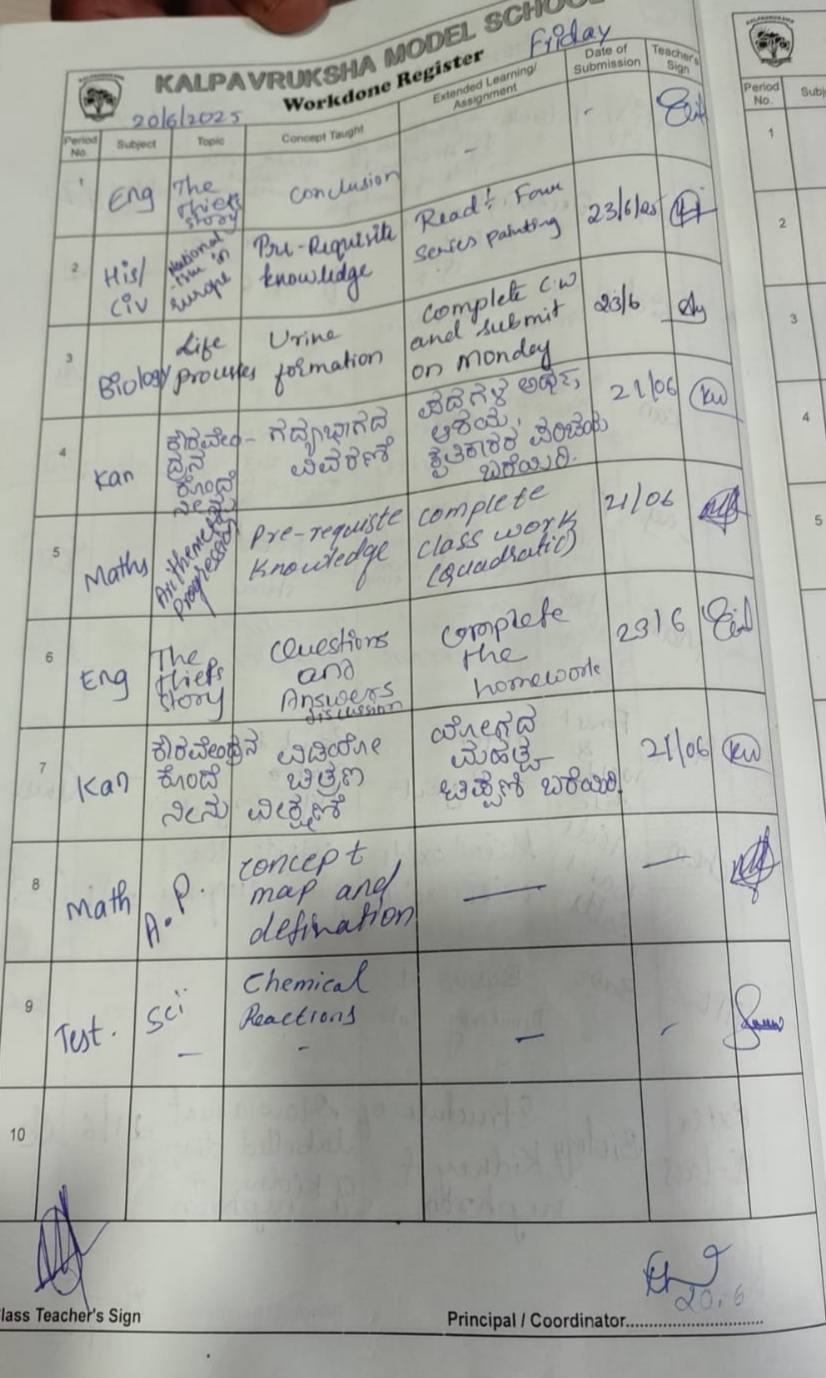 KALPAVRUKSHA MODEL SCHOOL
Workdone Register
Friday
20/6/2025
Period No.
Subject
Topic
Concept Taught
Extended Learning/ Assignment
Date of Submission
Teacher's Sign
1
Eng
The
thiefs
story
Conclusion
-
-
2
His/
Civ
National
-ism in
Europe
Pre-Requisite
knowledge
Read: Four
series painting
23/6/25
3
Biology
Life
processes
Urine
formation
Complete C.W
and submit
on Monday
23/6
4
Kan
ಕೌರವೇಂ-
ದ್ರನ
ಕೊಂದೆ
ನೀನು
ಗದ್ಯಭಾಗದ
ವಿವರಣೆ
ಪದಗಳ ಅರ್ಥ,
ಆಶಯ,
ಕೃತಿಕಾರರ ಪರಿಚಯ
ಬರೆಯಿರಿ.
21/06
5
Maths
Arithematic
Progression
Pre-requiste
Knowledge
complete
class work
(quadratic)
21/06
6
Eng
The
thiefs
story
Questions
and
Answers
discussion
Complete
the
homework
23/6
7
Kan
ಕೌರವೇಂದ್ರನ
ಕೊಂದೆ
ನೀನು
ವಿಡಿಯೋ
ಚಿತ್ರಣ
ವೀಕ್ಷಣೆ
ಯೋಗದ
ಮಹತ್ವ
ಟಿಪ್ಪಣಿ ಬರೆಯಿರಿ.
21/06
8
Math
A.P.
concept
map and
defination
—
—
9
Test.
Sci
-
Chemical
Reactions
-
-
-
10
Class Teacher's Sign
20.6
Principal / Coordinator
Period No.
1
2
3
4
5